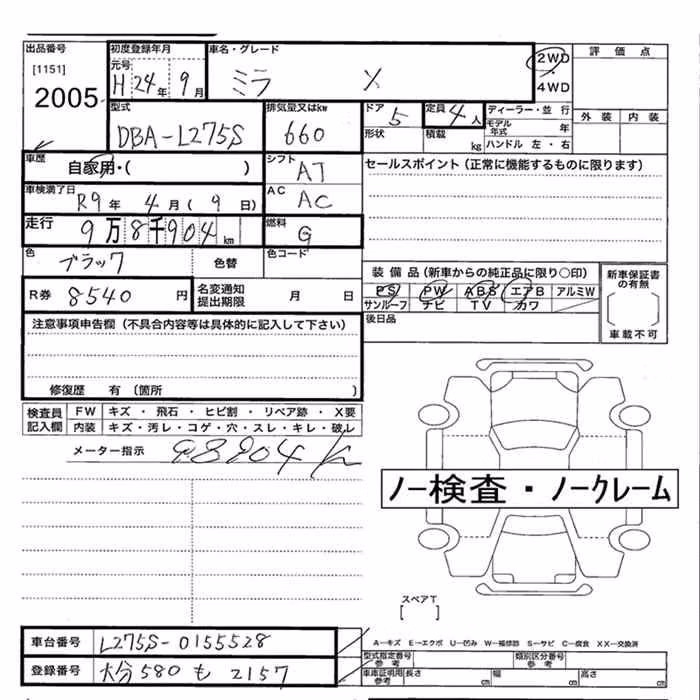 出品番号 初度登録年月 車名・グレード 2WD 4WD 評価点
[1151] 元号 H 24年 9月 ミラ X
2005
型式 DBA-L275S 排気量又はkw 660 ドア 5 定員 4人 ディーラー・並行 外装 内装
形状 積載 kg モデル年式 年
ハンドル 左・右
車歴 自家用・( ) シフト AT セールスポイント(正常に機能するものに限ります)
車検満了日 R9年 4月(9日) AC AC
走行 9万8千904km 燃料 G
色 ブラック 色替 色コード
装備品(新車からの純正品に限り○印) 新車保証書の有無
R券 8540円 名変通知提出期限 月 日 PS PW ABS エアB アルミW
サンルーフ ナビ TV カワ
車載不可
注意事項申告欄(不具合内容等は具体的に記入して下さい) 後日品
修復歴 有(箇所 )
検査員記入欄 FW キズ・飛石・ヒビ割・リペア跡・X要
内装 キズ・汚レ・コゲ・穴・スレ・キレ・破レ
メーター指示 98904km
ノー検査・ノークレーム
スペアT
[ ]
車台番号 L275S-0155528 A−キズ E−エクボ U−凹み W−補修跡 S−サビ C−腐食 XX−交換済
型式指定番号 参考 類別区分番号 参考
登録番号 大分580も2157 車庫証明用 参考 長さ cm 幅 cm 高さ cm